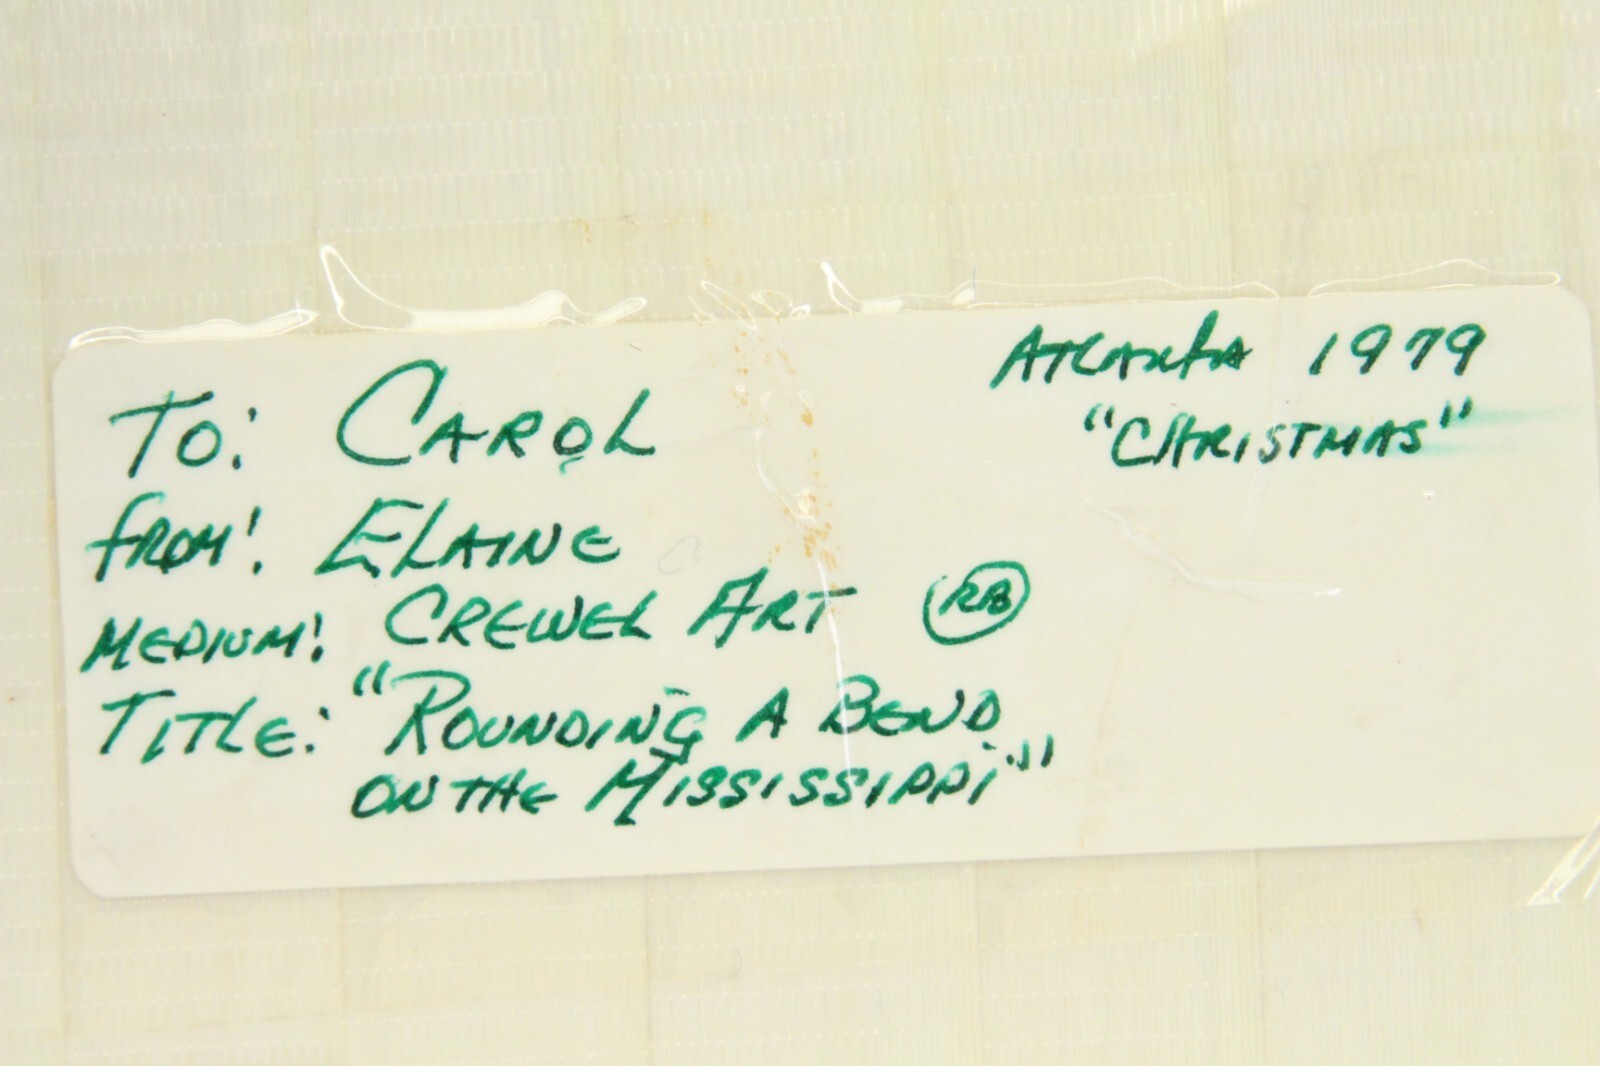 Atlanta 1979
"Christmas"
To: Carol
From: Elaine
Medium: Crewel Art RB
Title: "Rounding A Bend
on the Mississippi"